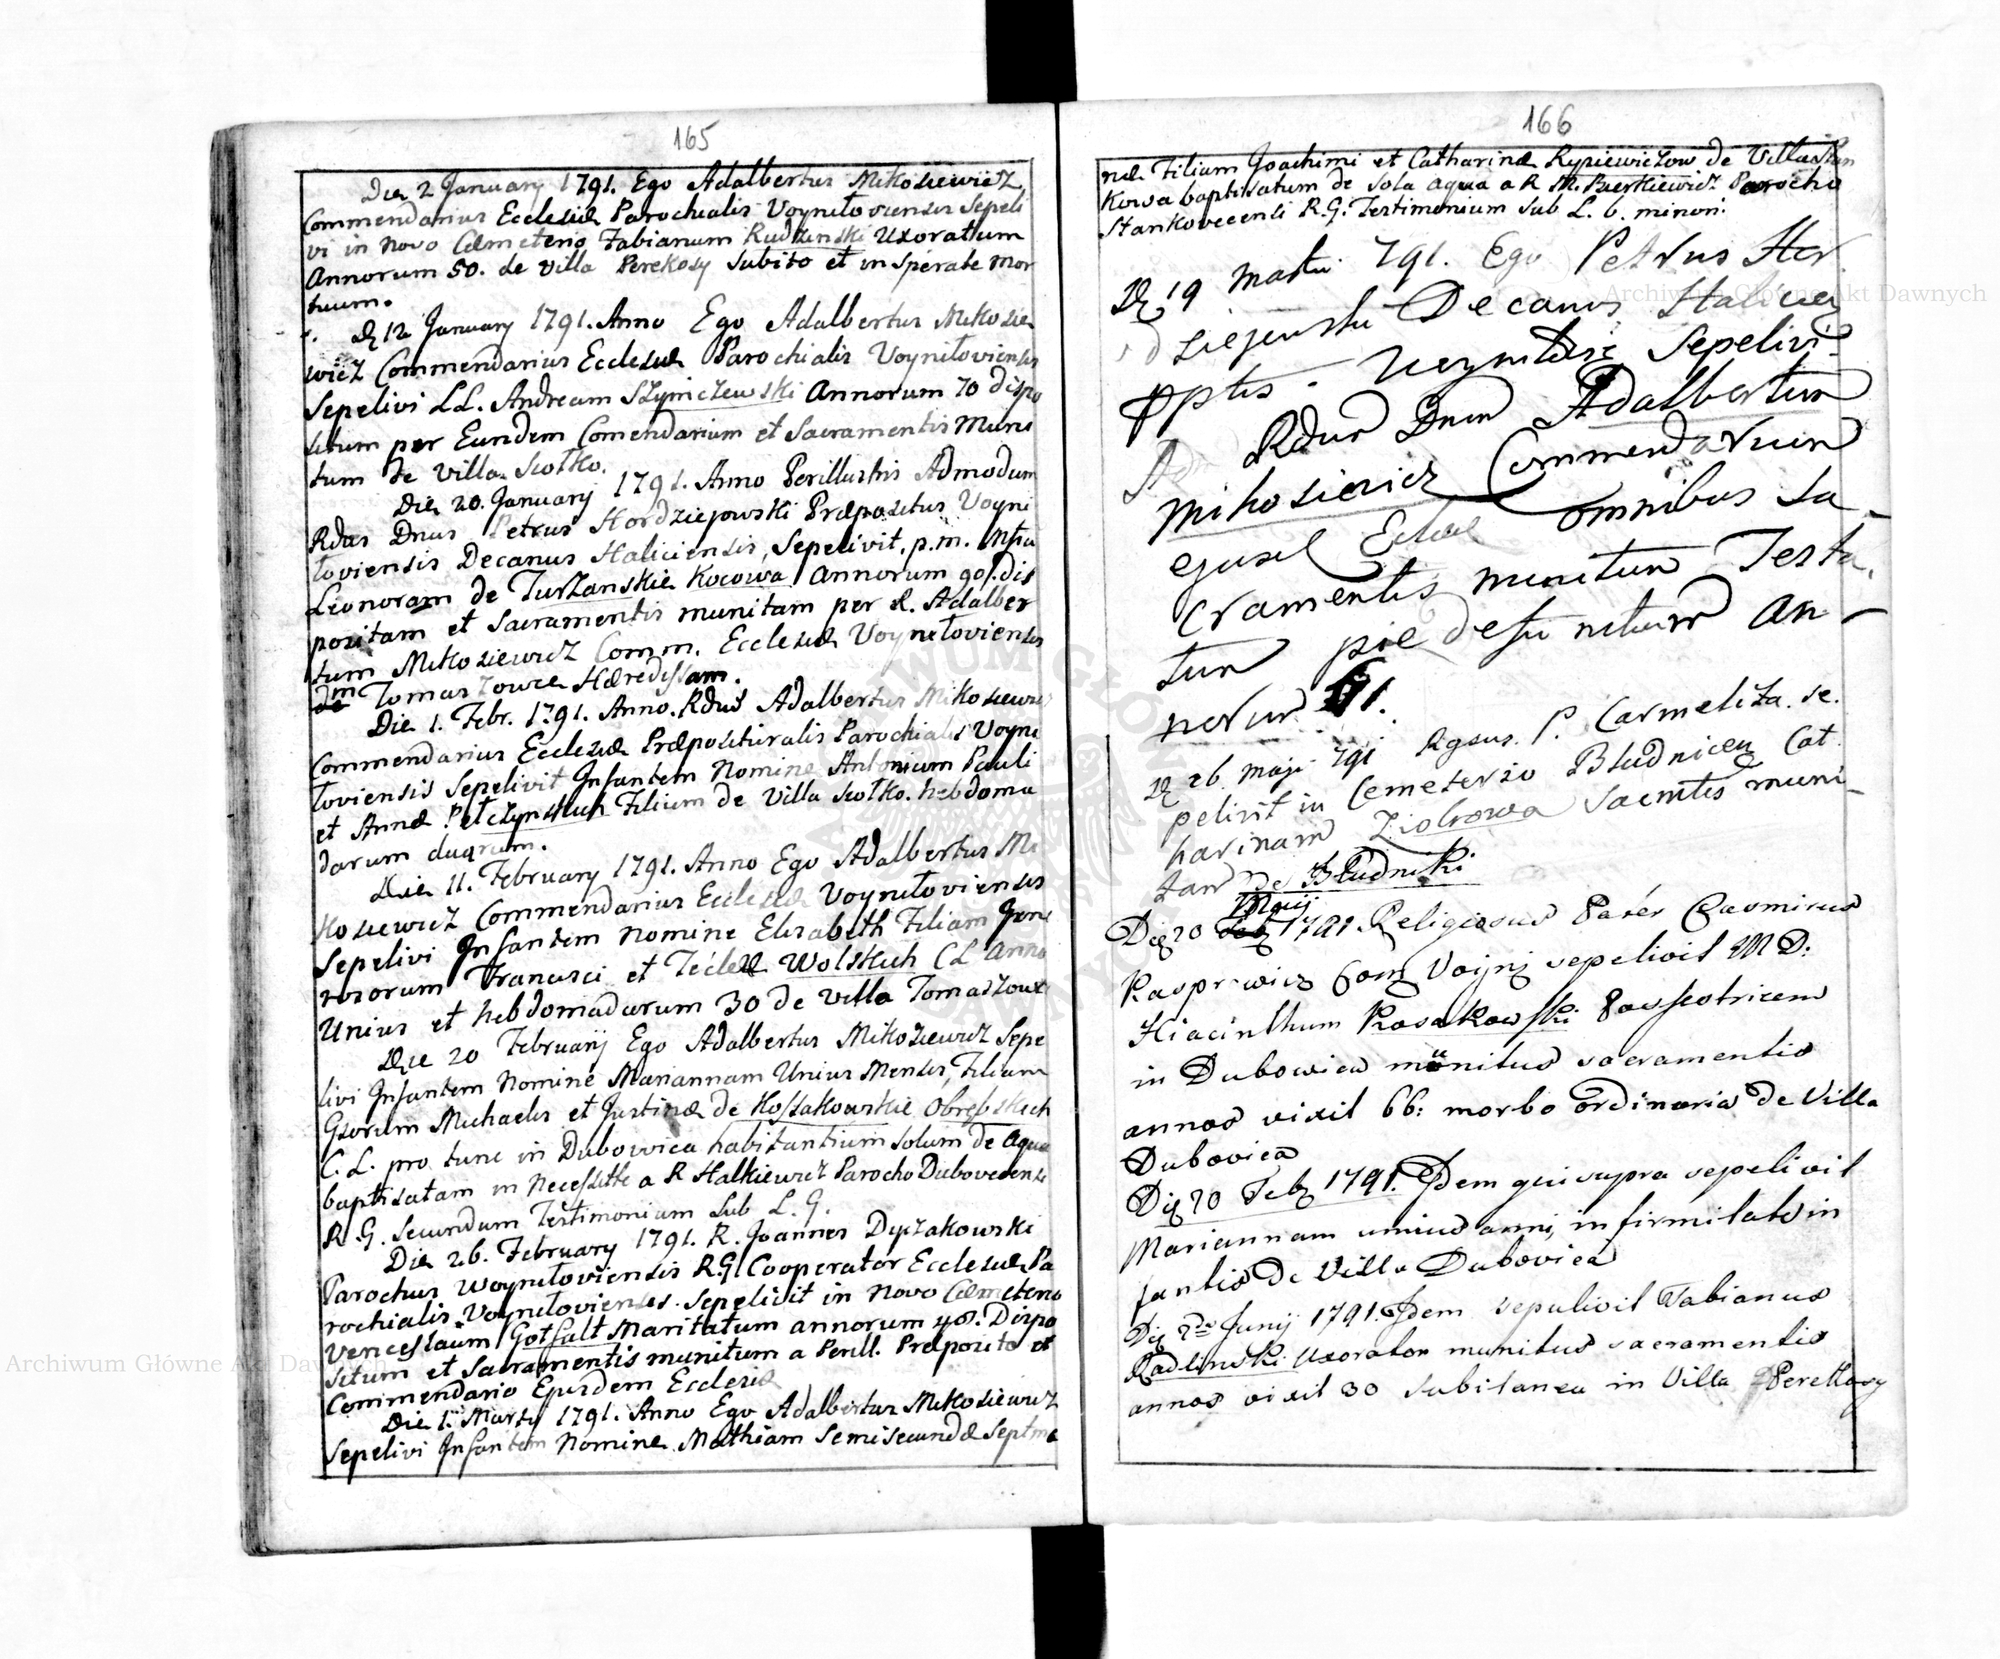 165
Die 2 January 1791. Ego Adalbertus Mikosiewicz
Commendarius Ecclesiæ Parochialis Voyniłoviensis Sepeli
vi in Novo Cæmeterio Fabianum Rudzinski Uxoratum
Annorum 50. de Villa Perekosy subito et insperate mor
tuum.
D 12 January 1791. Anno Ego Adalbertus Mikosie
wicz Commendarius Ecclesiæ Parochialis Voyniłoviensis
Sepelivi LL. Andream Szyniczewski Annorum 70 dispo
situm per Eundem Comendarium et Sacramentis Muni
tum de Villa Siołko.
Die 20. January 1791. Anno Perillustris Admodum
Rdus Dnus Petrus Hordziejowski Præpositus Voyni
łoviensis Decanus Haliciensis, Sepelivit. p. m.
Leonoram de Turzanskie Kocowa Annorum 90. dis
positam et Sacramentis munitam per R. Adalber
tum Mikosiewicz Comm. Ecclesiæ Voyniłoviensis
de Tomaszowce Hæredissam.
Die 1. Febr. 1791. Anno. Rdus Adalbertus Mikosiewicz
Commendarius Ecclesiæ Præposituralis Parochialis Voyni
łoviensis Sepelivit Infantem Nomine Antonium Pauli
et Annæ Pełczynskich Filium de Villa Siołko. hebdoma
darum duarum.
Die 11. February 1791. Anno Ego Adalbertus Mi
kosiewicz Commendarius Ecclesiæ Voyniłoviensis
Sepelivi Infantem Nomine Elisabeth Filiam Gene
rosorum Francisci et Teclæ Wolskich CL Anno
Unius et hebdomadarum 30 de Villa Tomaszowce
Die 20 Februarij Ego Adalbertus Mikosiewicz Sepe
livi Infantem Nomine Mariannam Unius Mensis, Filiam
Gsorum Michaelis et Justinæ de Kossakowskie Obrębskich
C. L. pro tunc in Dubowica habitantium solum de Aqua
baptisatam in Necessitte a R Halkiewicz Parocho Dubovecensi
R. G. Secundum Testimonium Sub L. G.
Die 26. February 1791. R. Joannes Dyszakowski
Parochus Woyniłoviensis R.G Cooperator Ecclesiæ Pa
rochialis Voyniłoviensis. Sepelivit in Novo Cæmeterio
Venceslaum Gotfalt Maritatum annorum 48. Dispo
situm et Sacramentis munitum a Perill. Præposito et
Commendario Ejusdem Ecclesiæ
Die 1. Marty 1791. Anno Ego Adalbertus Mikosiewicz
Sepelivi Infantem Nomine Mathiam Semisecundæ Septma
166
næ Filium Joachimi et Catharinæ Rysiewiczow de Villa Stan
kowa baptisatum de Sola Aqua a R M. Bierkiewicz Parocho
Stankovecensi R.G. Testimonium Sub L. b. minori.
D 19 Martii 791. Ego Petrus Hor
dziejewski Decanus Halicien
pptus Sepelivi
Rdum Dnum Adalbertum
Mikosiewicz Commendarium
ejusd Eclæ omnibus Sa
cramentis munitum Testa
tum pie defunctum An
norum 61.
D 26 maji 791 Rgsus. P. Carmelita. se.
pelivit in Cemeterio Błudnicen Cat
harinam Ziolrowa Sacmtis muni
tam de Błudniki
Maij
Die 20 1791. Religiosus Pater Casmirus
Kasprowicz Com Voijnj sepelivit MD:
Hiacinthum Kosakowski Possestricem
in Dubowica munitus sacramentis
annos vixit 66: morbo ordinario de Villa
Dubovica
Die 20 Feb 1791. Idem qui supra sepelivit
Mariannam unius anni, infirmitate in
fantis de Villa Dubovica
Die 2da Junij 1791. Idem sepulivit Fabianus
Radlinski Uxorator munitus sacramentis
annos vixit 30 subitanea in Villa Perekosy
Archiwum Główne Akt Dawnych
Archiwum Główne Akt Dawnych